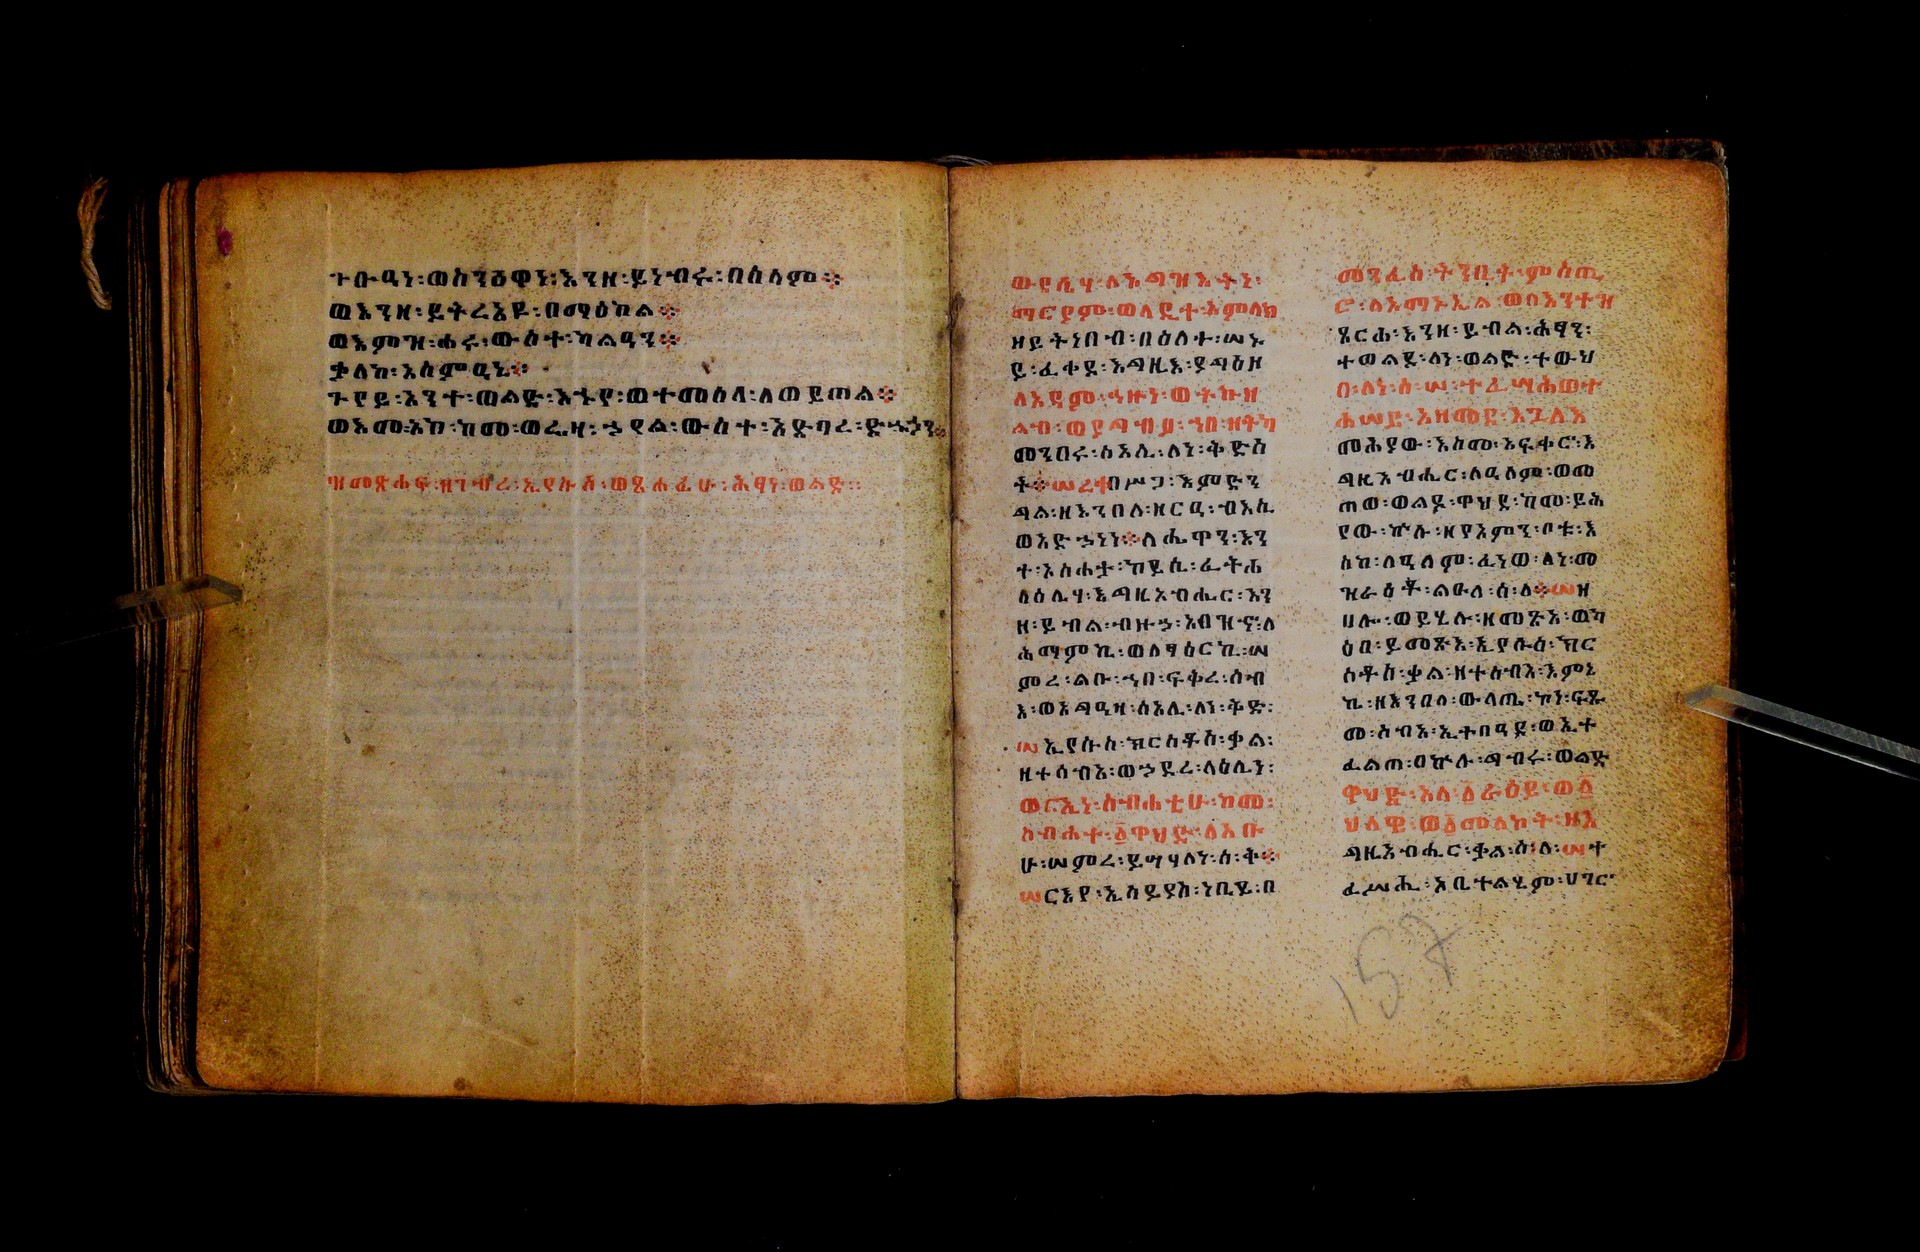 ወእንዘ፡ይትረአይ፡በማዕከል፨
ወእምዝ፡ሐሩ፡ውስተ፡
ወልድ፡
ውስተ፡
ዝመጽሐፍ፡ዘገብረ፡ኢየሱስ፡ወጸሐፈ፡ሁ፡ሕፃን፡ወልድ፡፡
ውዳሴሃ፡ለእግዝእትነ፡
ማርያም፡ወላዲተ፡አምላክ
ዘይትነበብ፡በዕለተ፡ሠኑ
ይ፡ፈቀደ፡እግዚእ፡ያግዕዘ
ለአዳም፡ኅዙነ፡ወትኩዘ
ልብ፡ወያግብኦ፡ኀበ፡ዘትካ
መንበሩ፡ሰአሊ፡ለነ፡ቅድስ
ት፨ሠረቀ፡በሥጋ፡እምድን
ግል፡ዘእንበለ፡ዘርዐ፡ብእሲ
ወአድኃነነ፨ለሔዋን፡እን
ተ፡አስሐታ፡ከይሲ፡ፈትሐ
ላዕሌሃ፡እግዚአብሔር፡እን
ዘ፡ይብል፡ብዙኃ፡አበዝኖ፡ለ
ሕማምኪ፡ወለፃዕርኪ፡ሠ
ምረ፡ልቡ፡ኀበ፡ፍቅረ፡ሰብ
እ፡ወአግዓዛ፡ሰአሊ፡ለነ፡ቅድ፡
ሠኢየሱስ፡ክርስቶስ፡ቃል፡
ዘተሰብአ፡ወኃደረ፡ላዕሌነ፡
ወርኢነ፡ስብሐቲሁ፡ከመ፡
ስብሐተ፡፩ዋህድ፡ለአቡ
ሁ፡ሠምረ፡ይሣሃለነ፡ሰ፡ቅ፨
ሠርእየ፡ኢሳይያስ፡ነቢይ፡በ
መንፈስ፡ትንቢት፡ምስጢ
ሮ፡ለአማኑኤል፡ወበእንተዝ
ጸርሐ፡እንዘ፡ይብል፡ሕፃን፡
ተወልደ፡ለነ፡ወልድ፡ተውህ
በ፡ለነ፡ሰ፡ሠ፡ተፈሣሕወተ
ሐሠይ፡አዘመደ፡እጓለእ
መሕያው፡እስመ፡አፍቀሮ፡እ
ግዚአብሔር፡ለዓለም፡ወመ
ጠወ፡ወልዶ፡ዋህደ፡ከመ፡ይሕ
የው፡ኵሉ፡ዘየአምን፡ቦቱ፡እ
ስከ፡ለዓለም፡ፈነወ፡ለነ፡መ
ዝራዕቶ፡ልዑለ፡ሰ፡ለ፨ሠዘ
ሀሎ፡ወይሄሉ፡ዘመጽአ፡ወካ
ዕበ፡ይመጽእ፡ኢየሱስ፡ክር
ስቶስ፡ቃል፡ዘተሰብአ፡እምኔ
ኪ፡ዘእንበለ፡ውላጤ፡ኮነ፡ፍጹ
መ፡ሰብአ፡ኢተበዓደ፡ወኢተ
ፈልጠ፡በኵሉ፡ግብሩ፡ወልድ
ዋህድ፡አላ፡፩ራዕይ፡ወ፩
ህላዌ፡ወ፩መለኮት፡ዘእ
ግዚአብሔር፡ቃል፡ሰ፡ለ፡ሠተ
ፈሥሒ፡ኦቤተልሄም፡ሀገር
157